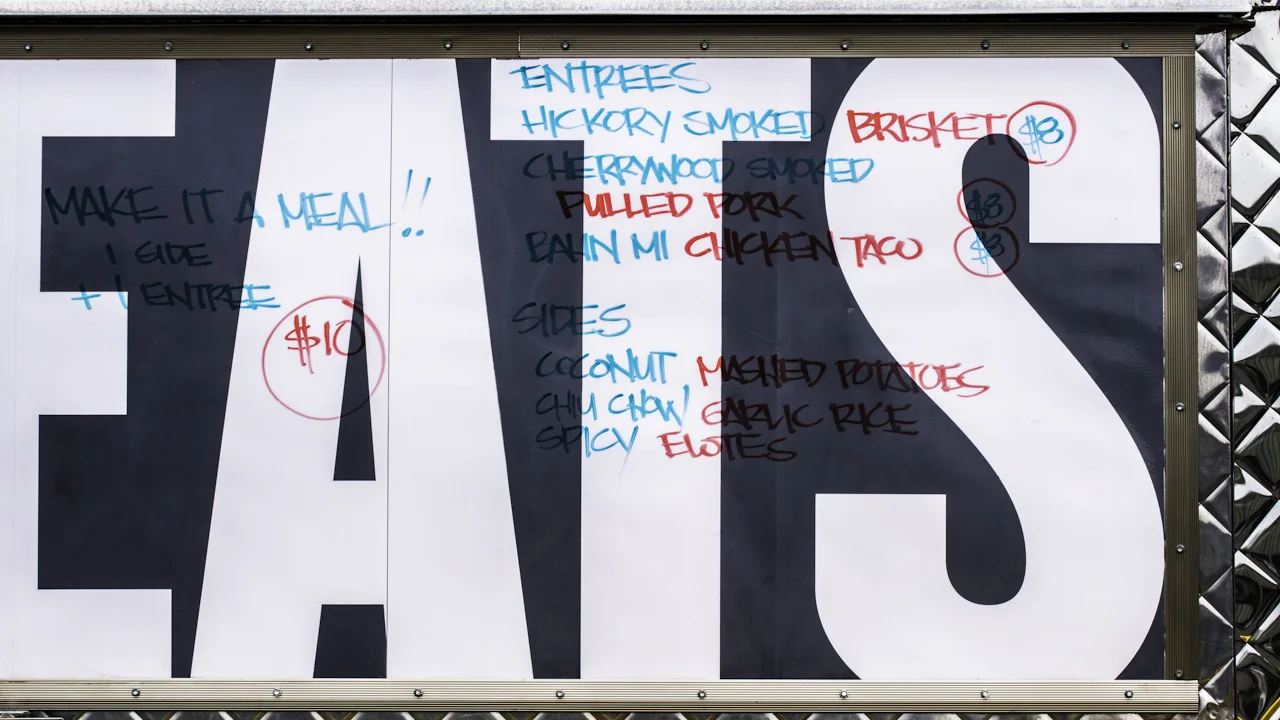 EATS
MAKE IT A MEAL!!
1 SIDE
+ 1 ENTREE
$10
ENTREES
HICKORY SMOKED BRISKET $8
CHERRYWOOD SMOKED
PULLED PORK $8
BAHN MI CHICKEN TACO $8
SIDES
COCONUT MASHED POTATOES
CHIU CHOW GARLIC RICE
SPICY ELOTES